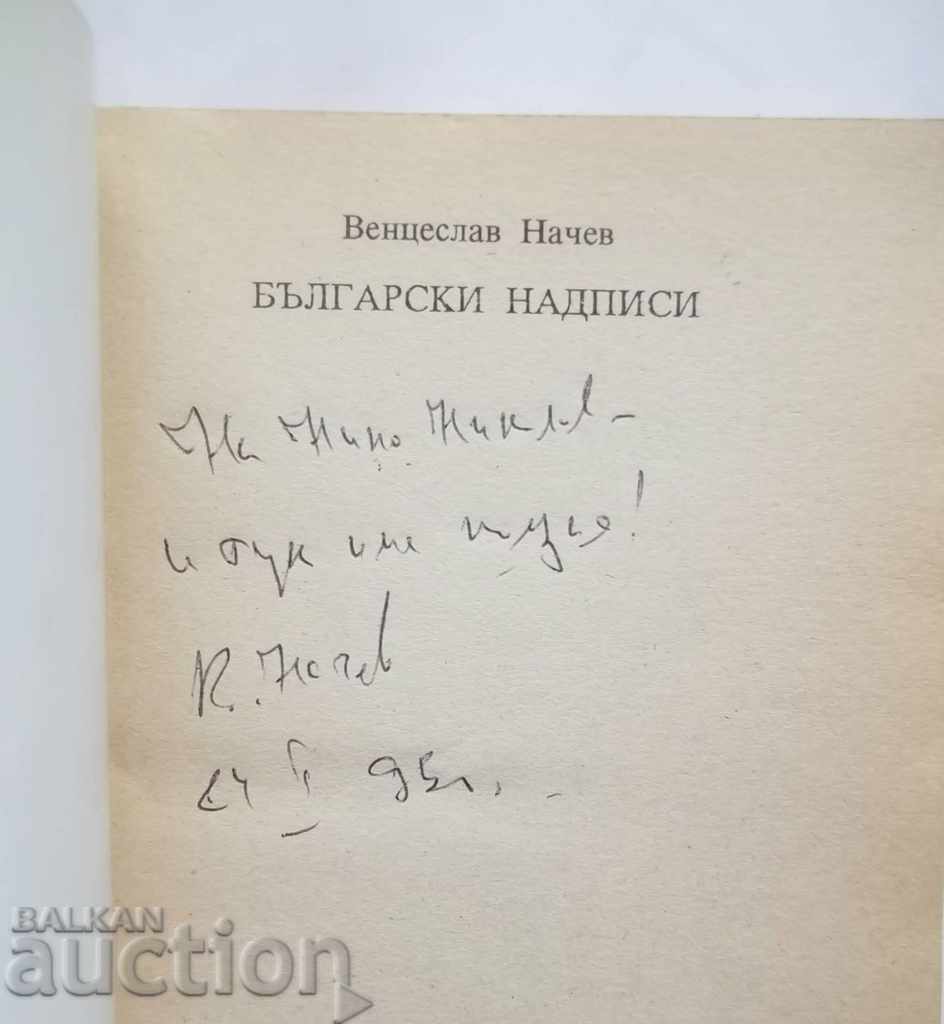 Венцеслав Начев
БЪЛГАРСКИ НАДПИСИ
На Нино Николов –
и тук има
Начев
95 г.
BALKAN
auction